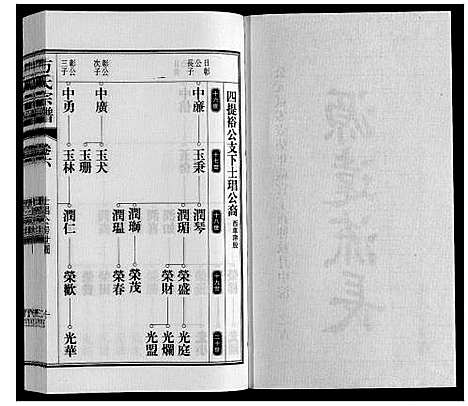 四提裕公支下士琩公裔
十六世
十七世
十八世
十九世
二十世
日彰公長子
中亷
玉秉
潤琴
潤瑂
榮盛
榮財
光庭
光爛
光盟
彰公次子
中廣
玉犬
玉珊
潤獅
潤瑥
榮茂
榮春
彰公三子
中勇
玉林
潤仁
榮歡
光華
方氏宗譜
卷六
源遠流長